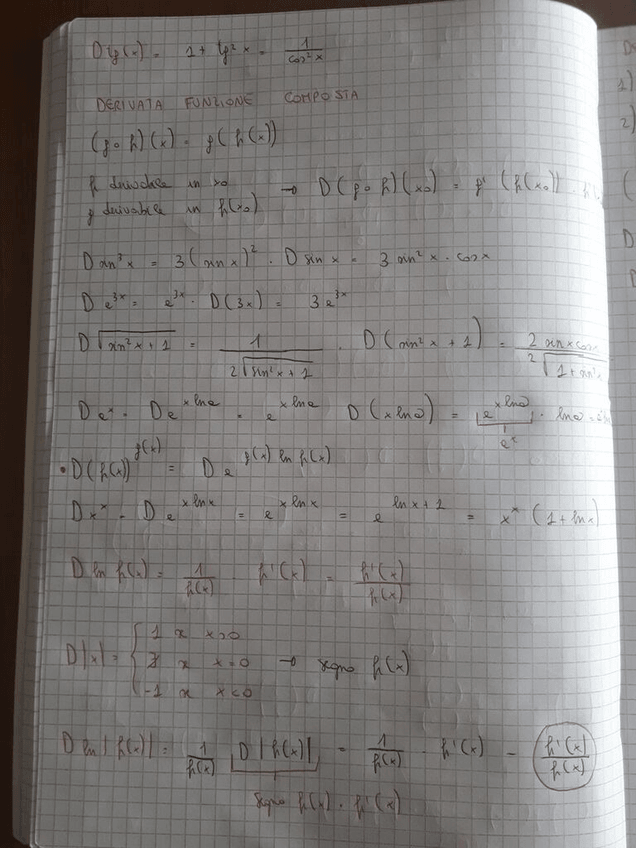 D tg(x) = 1 + tg²x = 1/cos²x
DERIVATA FUNZIONE COMPOSTA
(g∘h)(x) = g(h(x))
h derivabile in x₀
g derivabile in h(x₀) → D(g∘h)(x₀) = g'(h(x₀)) · h'(
D sin³x = 3(sin x)² · D sin x = 3 sin²x · cos x
D e^3x = e^3x · D(3x) = 3e^3x
D √(sin²x + 1) = 1/(2√(sin²x + 1)) · D(sin²x + 1) = 2 sin x cos x/(2√(1 + sin²x
D a^x = D e^(x ln a) = e^(x ln a) D(x ln a) = e^(x ln a) · ln a =
a^x
• D(h(x))^g(x) = D e^(g(x) ln h(x))
D x^x = D e^(x ln x) = e^(x ln x) = e^(ln x + 1) = x^x (1 + ln x)
D ln h(x) = 1/h(x) · h'(x) = h'(x)/h(x)
D|x| = { 1 x x>0
∄ x x=0 → segno h(x)
-1 x x<0
D ln|h(x)| = 1/h(x) D|h(x)| = 1/h(x) · h'(x) = h'(x)/h(x)
segno h(x) · h'(x)